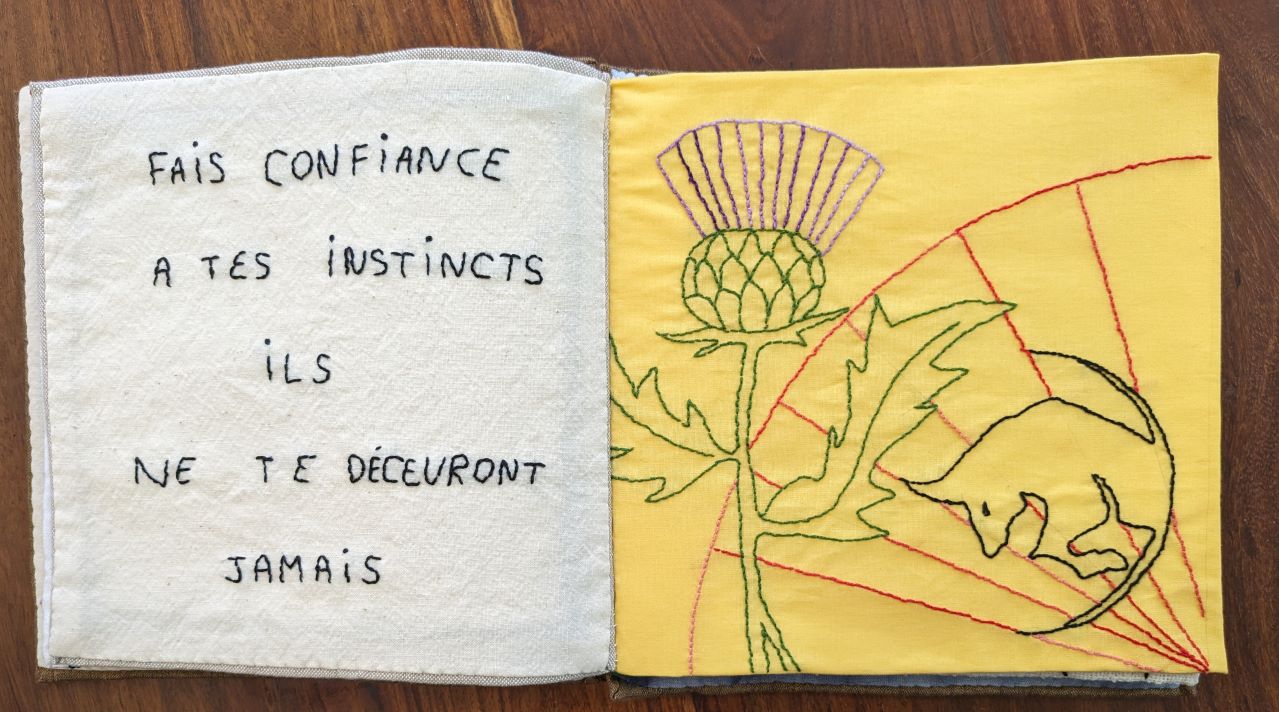 FAIS CONFIANCE
A TES INSTINCTS
ILS
NE TE DÉCEVRONT
JAMAIS